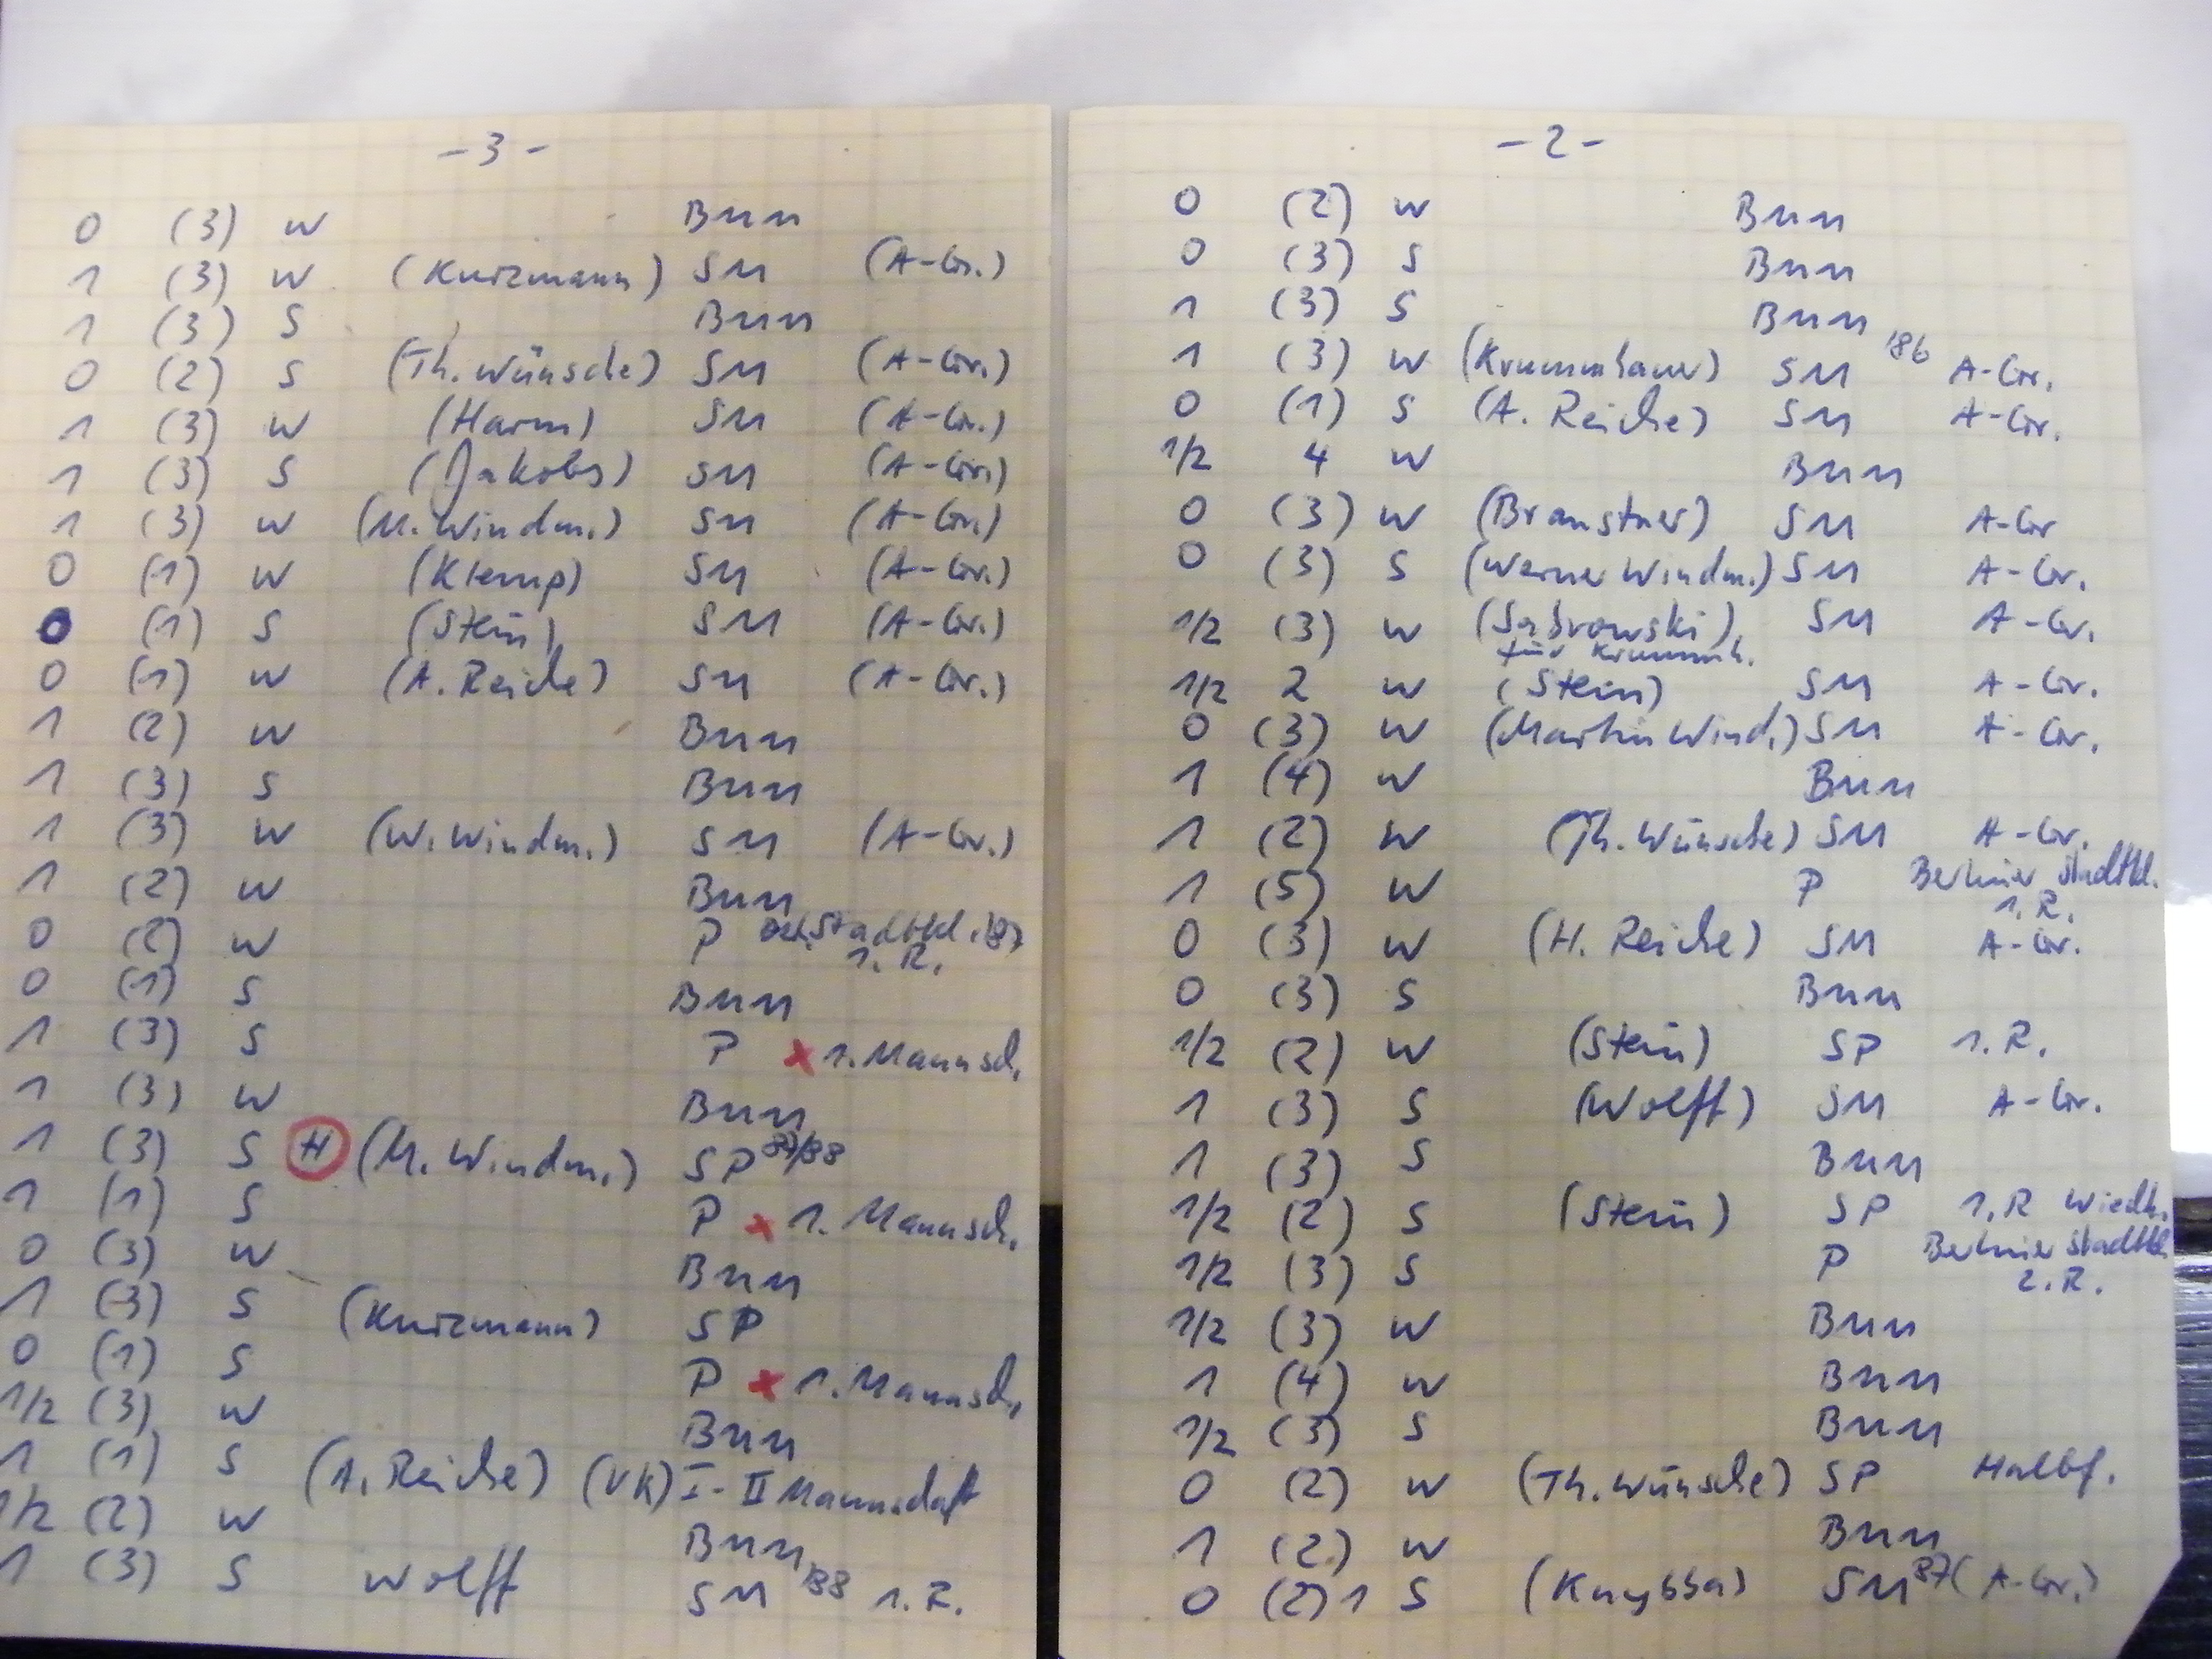 - 3 -
0 (3) W BMM
1 (3) W (Kurzmann) SM (A-Gr.)
1 (3) S BMM
0 (2) S (Th. Wünsche) SM (A-Gr.)
1 (3) W (Harm) SM (A-Gr.)
1 (3) S (Jakobs) SM (A-Gr.)
1 (3) W (M. Windm.) SM (A-Gr.)
0 (1) W (Klemp) SM (A-Gr.)
0 (1) S (Stein) SM (A-Gr.)
0 (1) W (A. Reiche) SM (A-Gr.)
1 (2) W BMM
1 (3) S BMM
1 (3) W (W. Windm.) SM (A-Gr.)
1 (2) W BMM
0 (2) W P
1. R.
0 (1) S BMM
1 (3) S P x 1. Mannsch.
1 (3) W BMM
1 (3) S H (M. Windm.) SP 87/88
1 (1) S P x 1. Mannsch.
0 (3) W BMM
1 (3) S (Kurzmann) SP
0 (1) S P x 1. Mannsch.
1/2 (3) W BMM
1 (1) S (A. Reiche) (VK) I-II Mannschaft
1/2 (2) W BMM
1 (3) S Wolff SM '88 1. R.
- 2 -
0 (2) W BMM
0 (3) S BMM
1 (3) S BMM
1 (3) W (Krummhauer) SM '86 A-Gr.
0 (1) S (A. Reiche) SM A-Gr.
1/2 4 W BMM
0 (3) W (Branstner) SM A-Gr
0 (3) S (Werner Windm.) SM A-Gr.
1/2 (3) W (Sabrowski), SM A-Gr.
für Krummh.
1/2 2 W (Stein) SM A-Gr.
0 (3) W (Martin Wind.) SM A-Gr.
1 (4) W BMM
1 (2) W (Th. Wünsche) SM A-Gr.
1 (5) W P Berliner Stadtkl.
1. R.
0 (3) W (H. Reiche) SM A-Gr.
0 (3) S BMM
1/2 (2) W (Stein) SP 1. R.
1 (3) S (Wolff) SM A-Gr.
1 (3) S BMM
1/2 (2) S (Stein) SP 1. R Wiedh.
1/2 (3) S P Berliner Stadtkl.
2. R.
1/2 (3) W BMM
1 (4) W BMM
1/2 (3) S BMM
0 (2) W (Th. Wünsche) SP Halbf.
1 (2) W BMM
0 (2) 1 S (Knybba) SM '87 (A-Gr.)